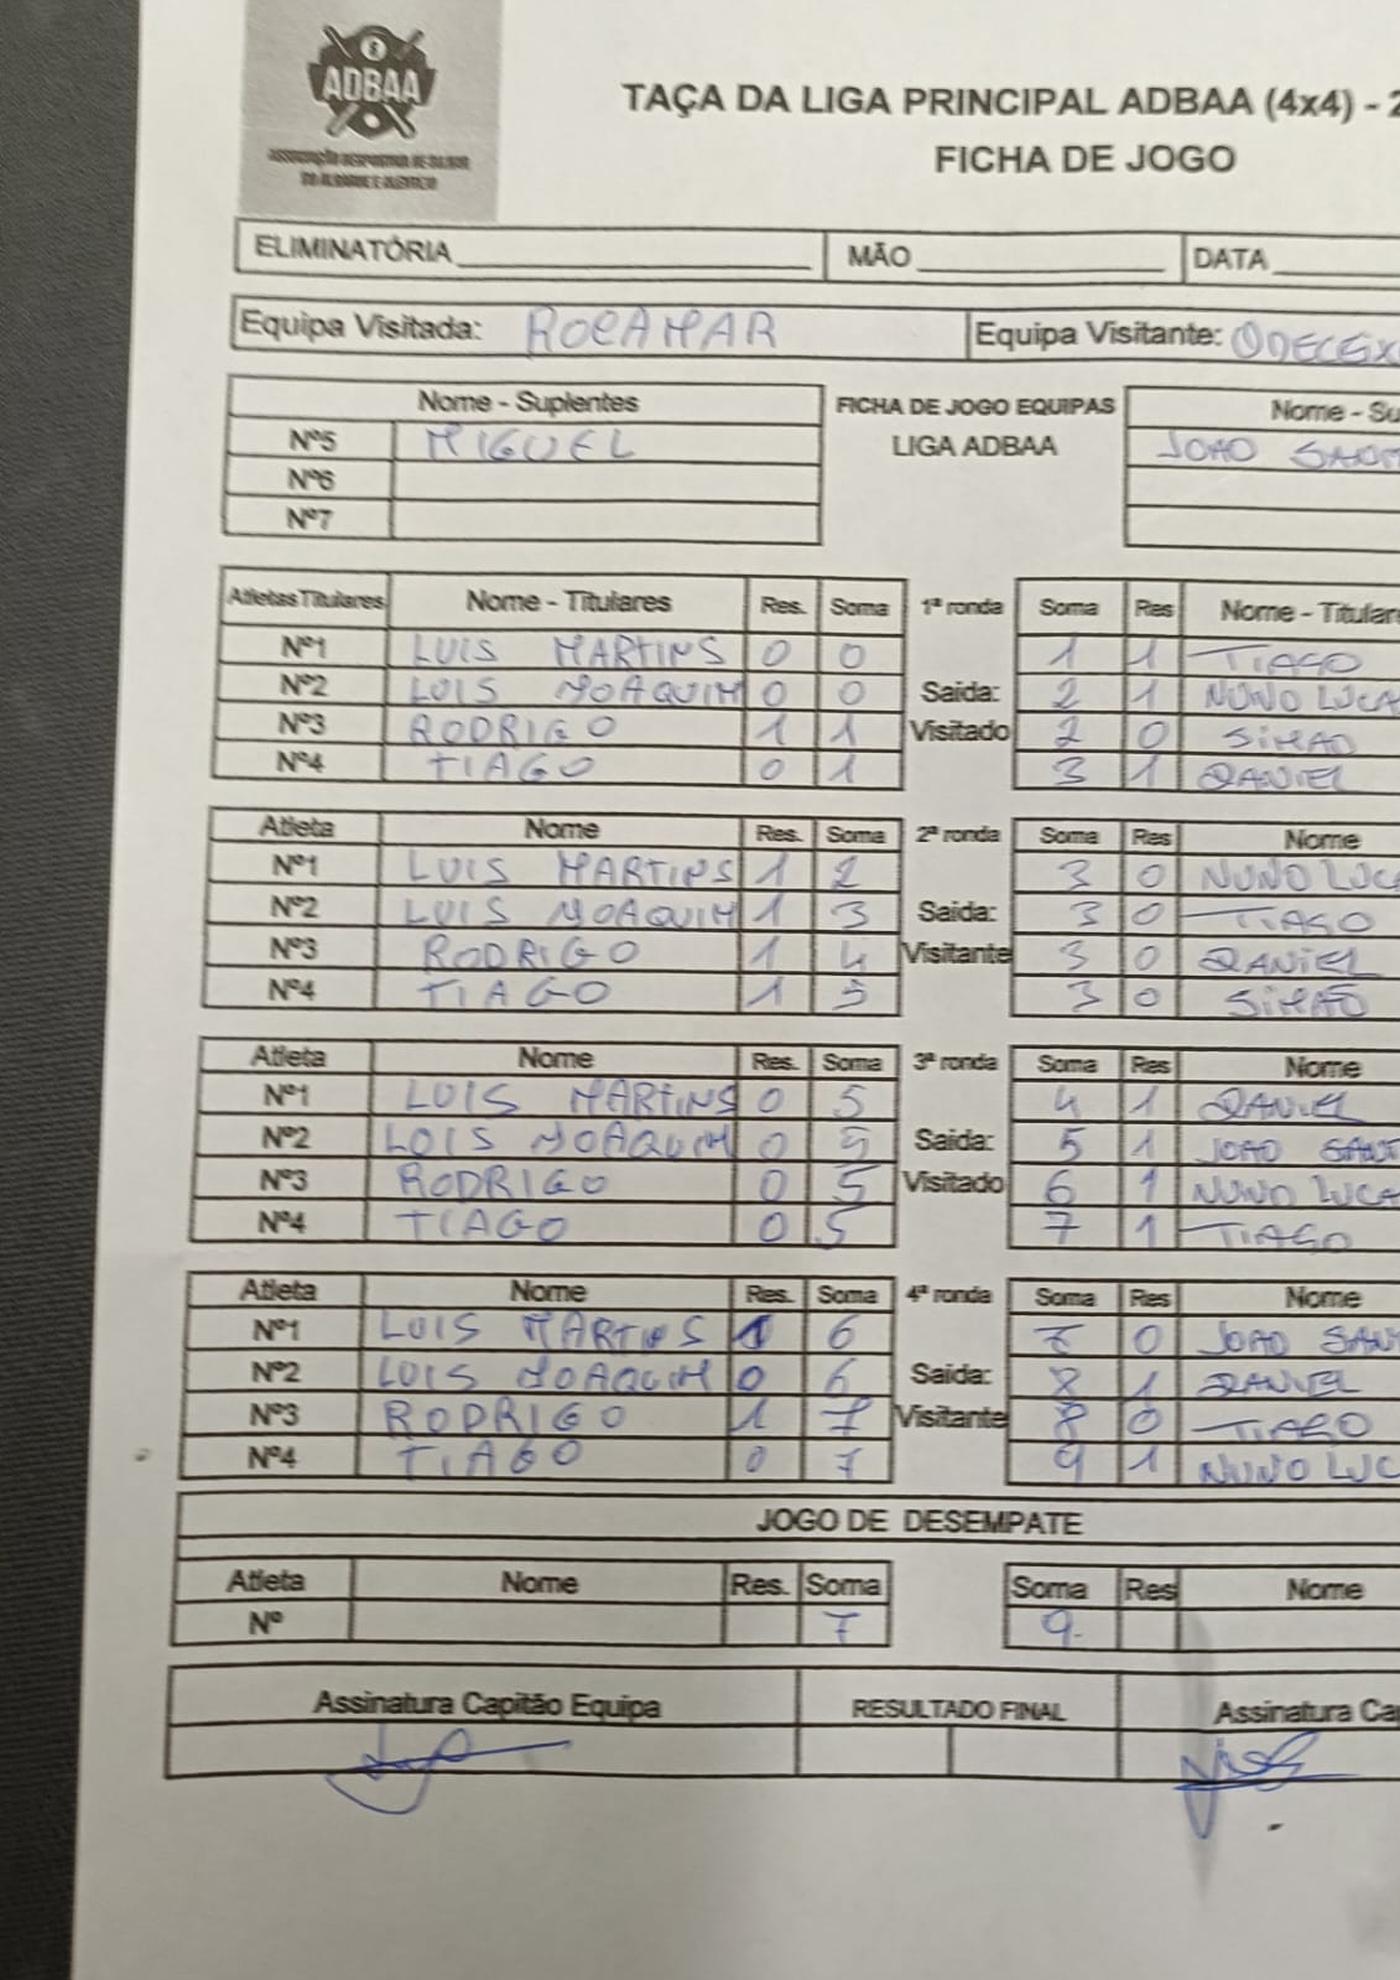 ADBAA
ASSOCIAÇÃO DESPORTIVA DE BILHAR
DO ALGARVE E ALENTEJO
TAÇA DA LIGA PRINCIPAL ADBAA (4x4) - 2
FICHA DE JOGO
ELIMINATÓRIA MÃO DATA
Equipa Visitada: ROCAMAR Equipa Visitante: ODECEIX
Nome - Suplentes FICHA DE JOGO EQUIPAS Nome - Su
Nº5 MIGUEL LIGA ADBAA JOAO SANT
Nº6
Nº7
Atletas Titulares Nome - Titulares Res. Soma 1ª ronda Soma Res Nome - Titular
Nº1 LUIS MARTINS 0 0 1 1 TIAGO
Nº2 LUIS JOAQUIM 0 0 Saida: 2 1 NUNO LUCA
Nº3 RODRIGO 1 1 Visitado 2 0 SIMAO
Nº4 TIAGO 0 1 3 1 DANIEL
Atleta Nome Res. Soma 2ª ronda Soma Res Nome
Nº1 LUIS MARTINS 1 2 3 0 NUNO LUCA
Nº2 LUIS JOAQUIM 1 3 Saida: 3 0 TIAGO
Nº3 RODRIGO 1 4 Visitante 3 0 DANIEL
Nº4 TIAGO 1 5 3 0 SIMÃO
Atleta Nome Res. Soma 3ª ronda Soma Res Nome
Nº1 LUIS MARTINS 0 5 4 1 DANIEL
Nº2 LUIS JOAQUIM 0 5 Saida: 5 1 JOAO SANT
Nº3 RODRIGO 0 5 Visitado 6 1 NUNO LUCA
Nº4 TIAGO 0 5 7 1 TIAGO
Atleta Nome Res. Soma 4ª ronda Soma Res Nome
Nº1 LUIS MARTINS 1 6 7 0 JOAO SAN
Nº2 LUIS JOAQUIM 0 6 Saida: 8 1 DANIEL
Nº3 RODRIGO 1 7 Visitante 8 0 TIAGO
Nº4 TIAGO 0 7 9 1 NUNO LUC
JOGO DE DESEMPATE
Atleta Nome Res. Soma Soma Res Nome
Nº 7 9
Assinatura Capitão Equipa RESULTADO FINAL Assinatura Ca